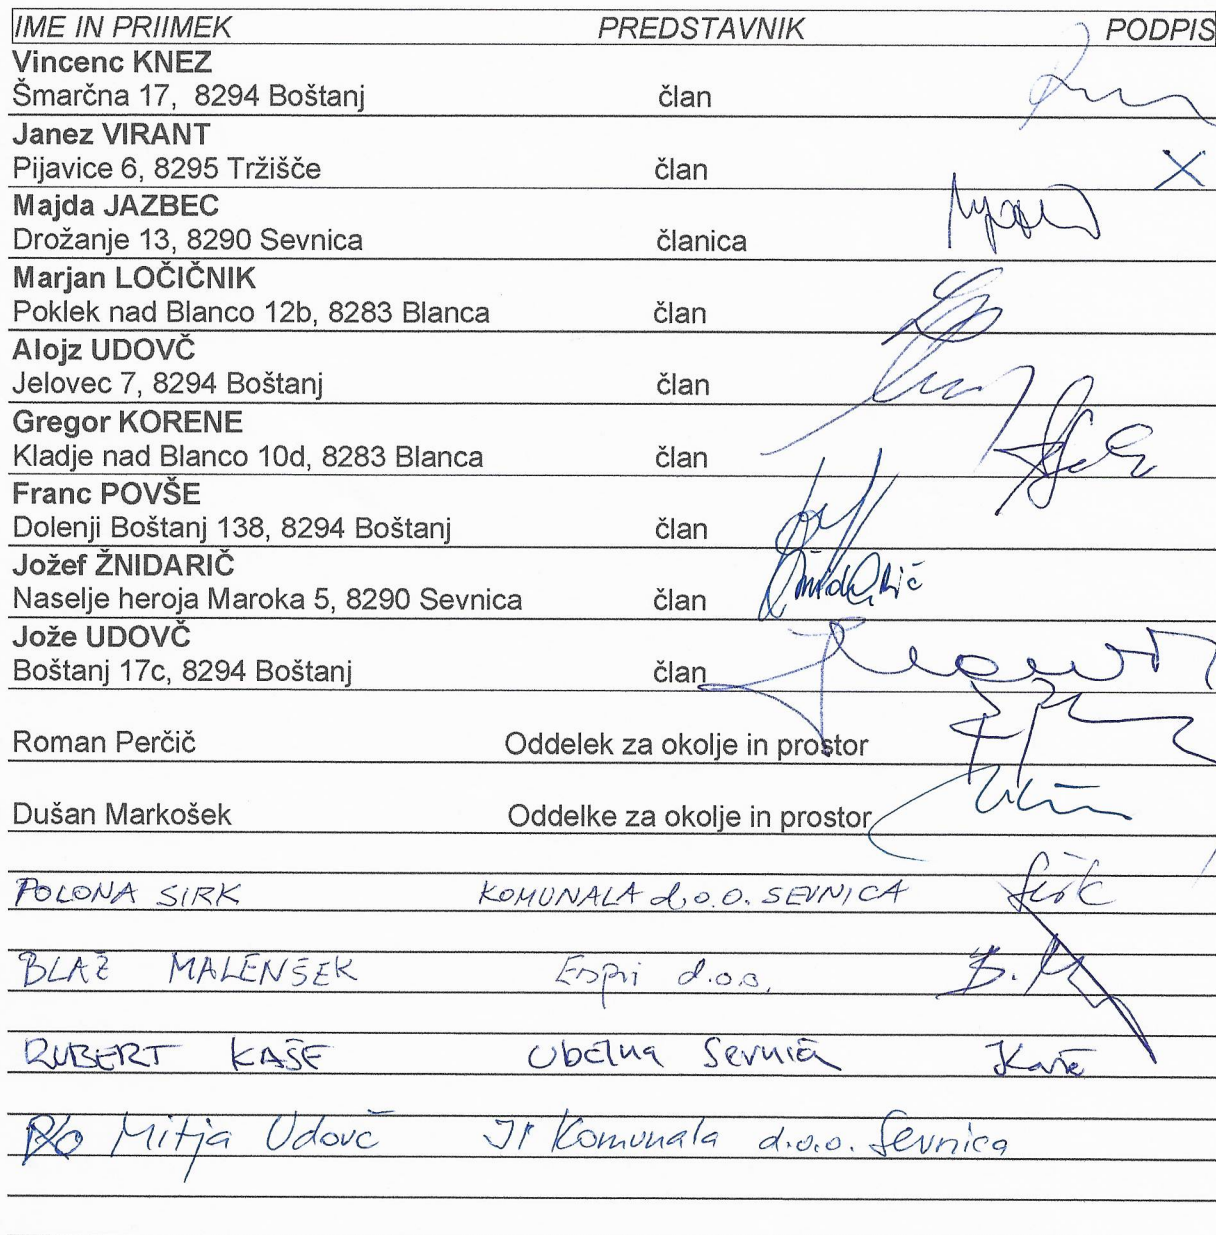 IME IN PRIIMEK PREDSTAVNIK PODPIS
Vincenc KNEZ
Šmarčna 17, 8294 Boštanj član
Janez VIRANT
Pijavice 6, 8295 Tržišče član X
Majda JAZBEC
Drožanje 13, 8290 Sevnica članica
Marjan LOČIČNIK
Poklek nad Blanco 12b, 8283 Blanca član
Alojz UDOVČ
Jelovec 7, 8294 Boštanj član
Gregor KORENE
Kladje nad Blanco 10d, 8283 Blanca član
Franc POVŠE
Dolenji Boštanj 138, 8294 Boštanj član
Jožef ŽNIDARIČ
Naselje heroja Maroka 5, 8290 Sevnica član
Jože UDOVČ
Boštanj 17c, 8294 Boštanj član
Roman Perčič Oddelek za okolje in prostor
Dušan Markošek Oddelke za okolje in prostor
POLONA SIRK KOMUNALA d.o.o. SEVNICA Sirk
BLAŽ MALENŠEK Espri d.o.o. B.
ROBERT KAŠE Občina Sevnica Kaše
Mitja Udovč JP Komunala d.o.o. Sevnica